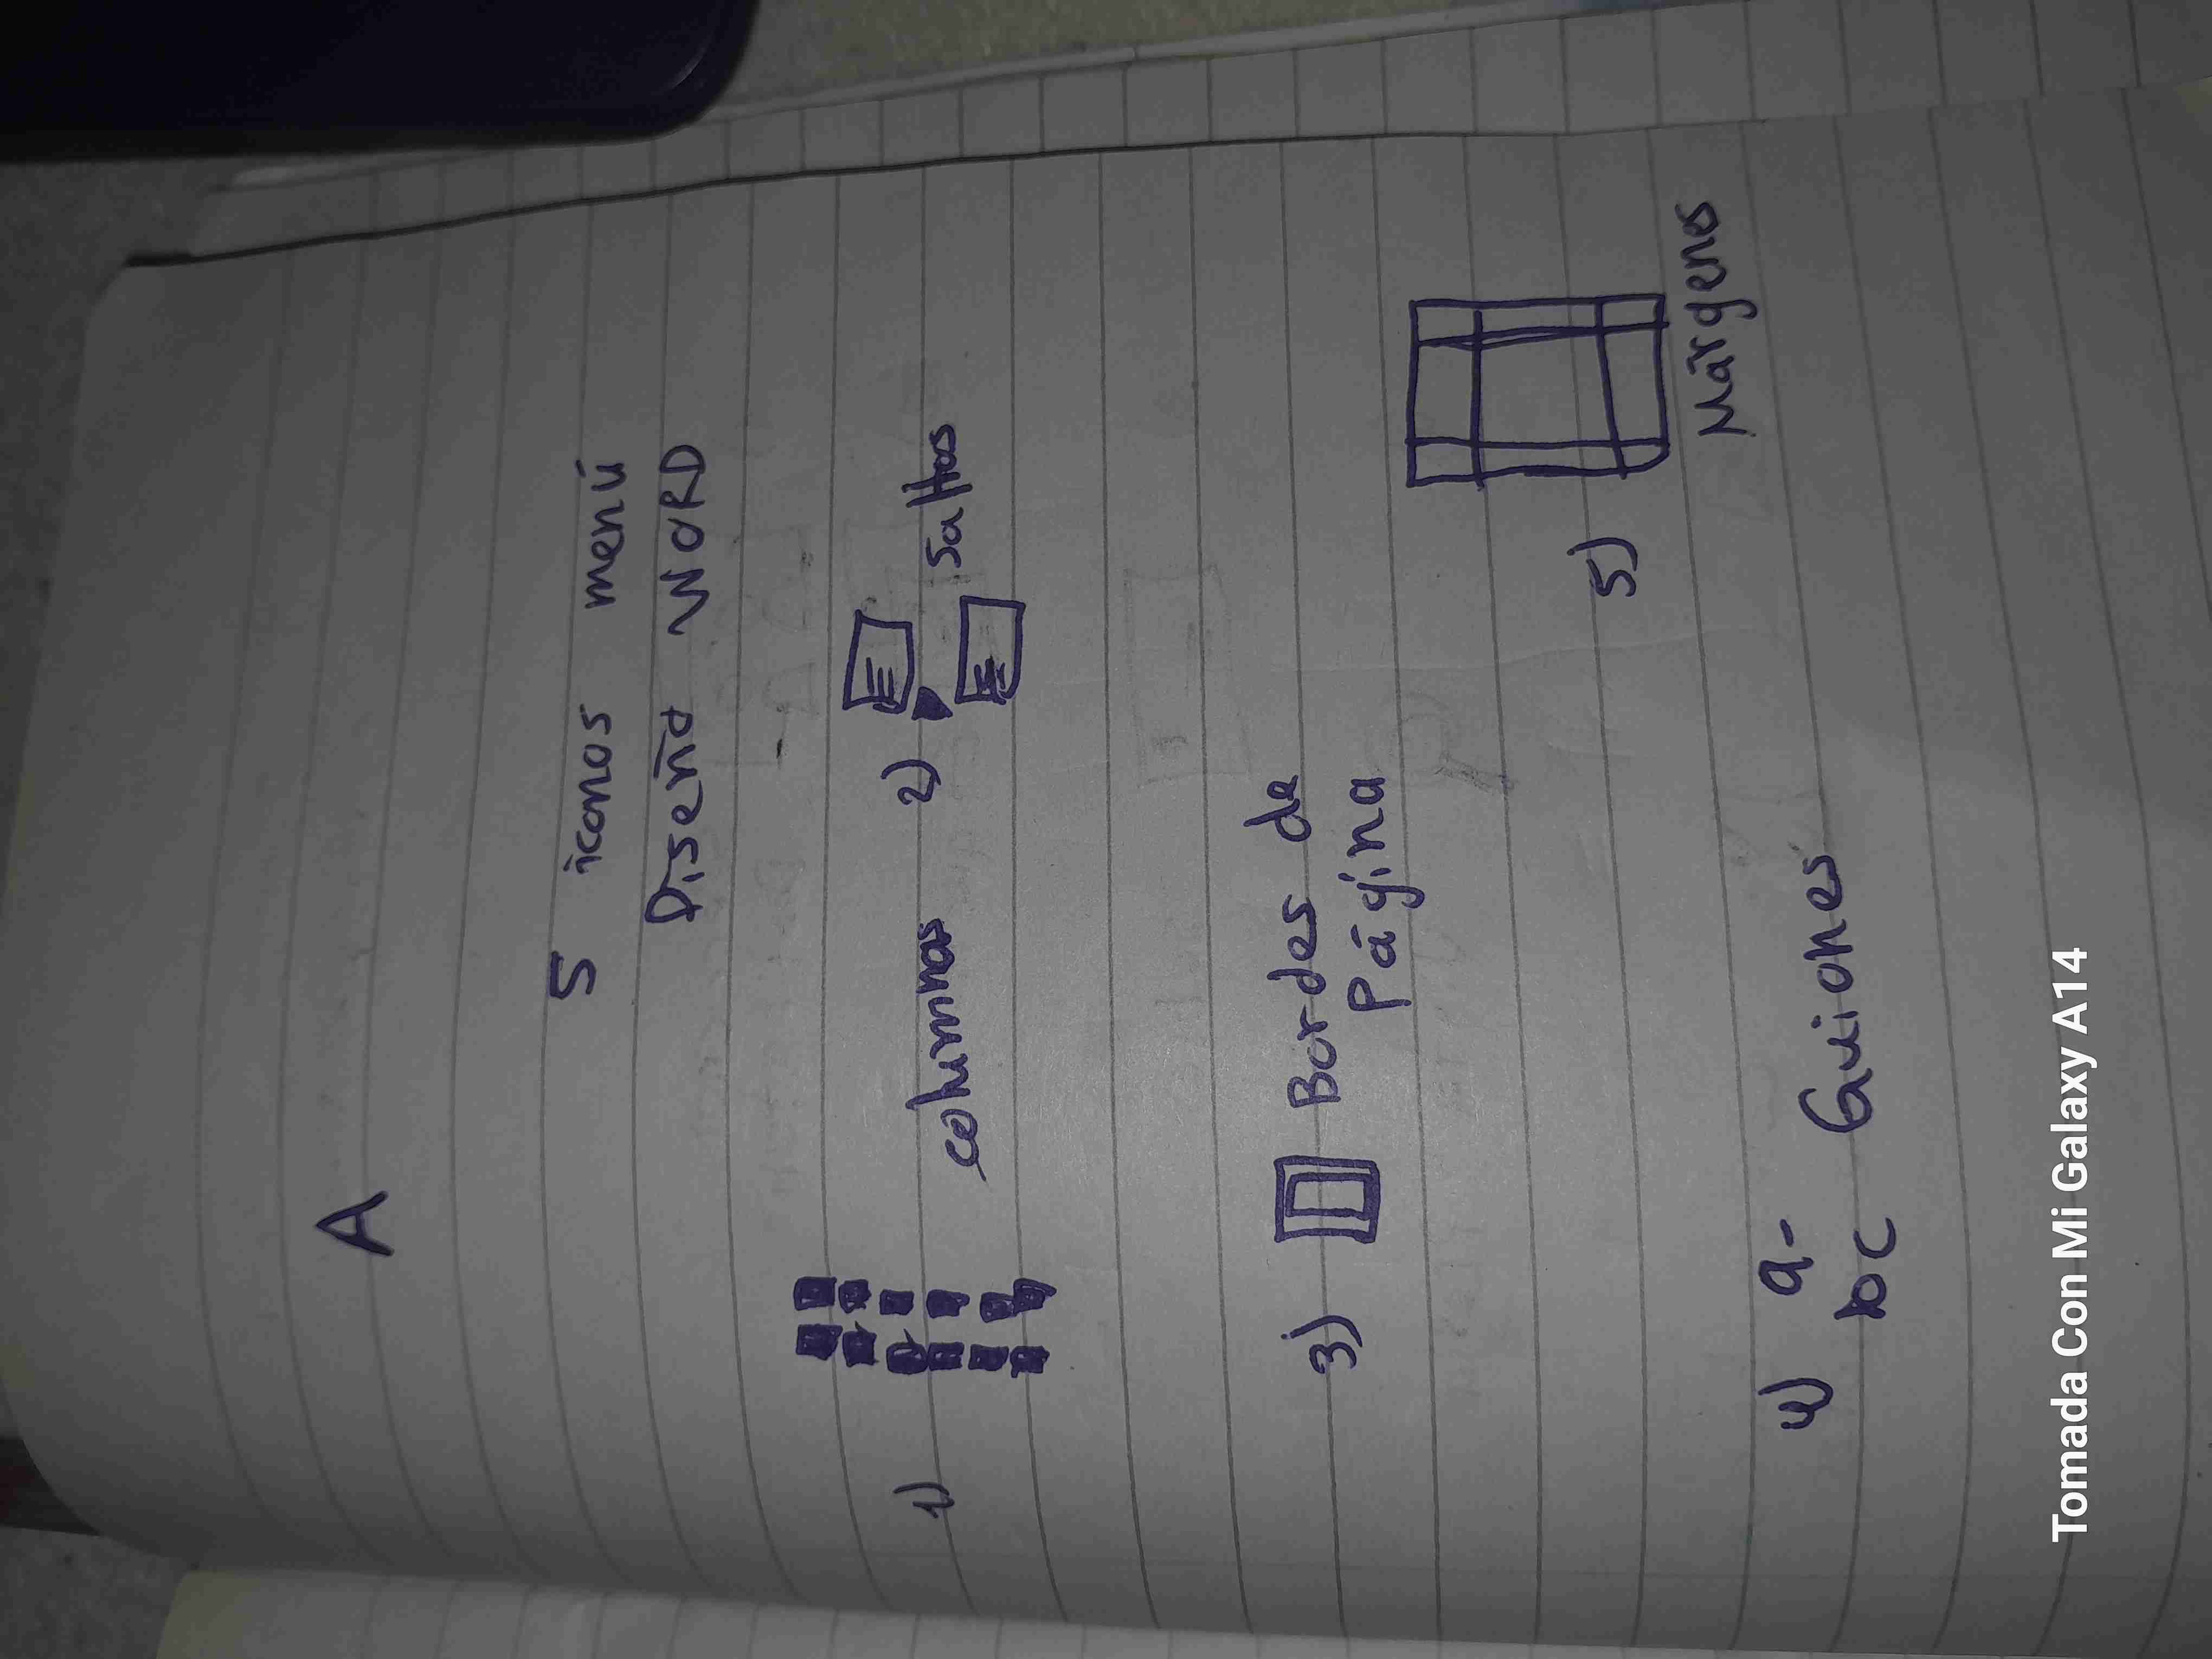 A
5 iconos menú
Diseño WORD
1) columnas 2) Saltos
3) Bordes de
Página
5)
Márgenes
4) a-
bc Guiones
Tomada Con Mi Galaxy A14